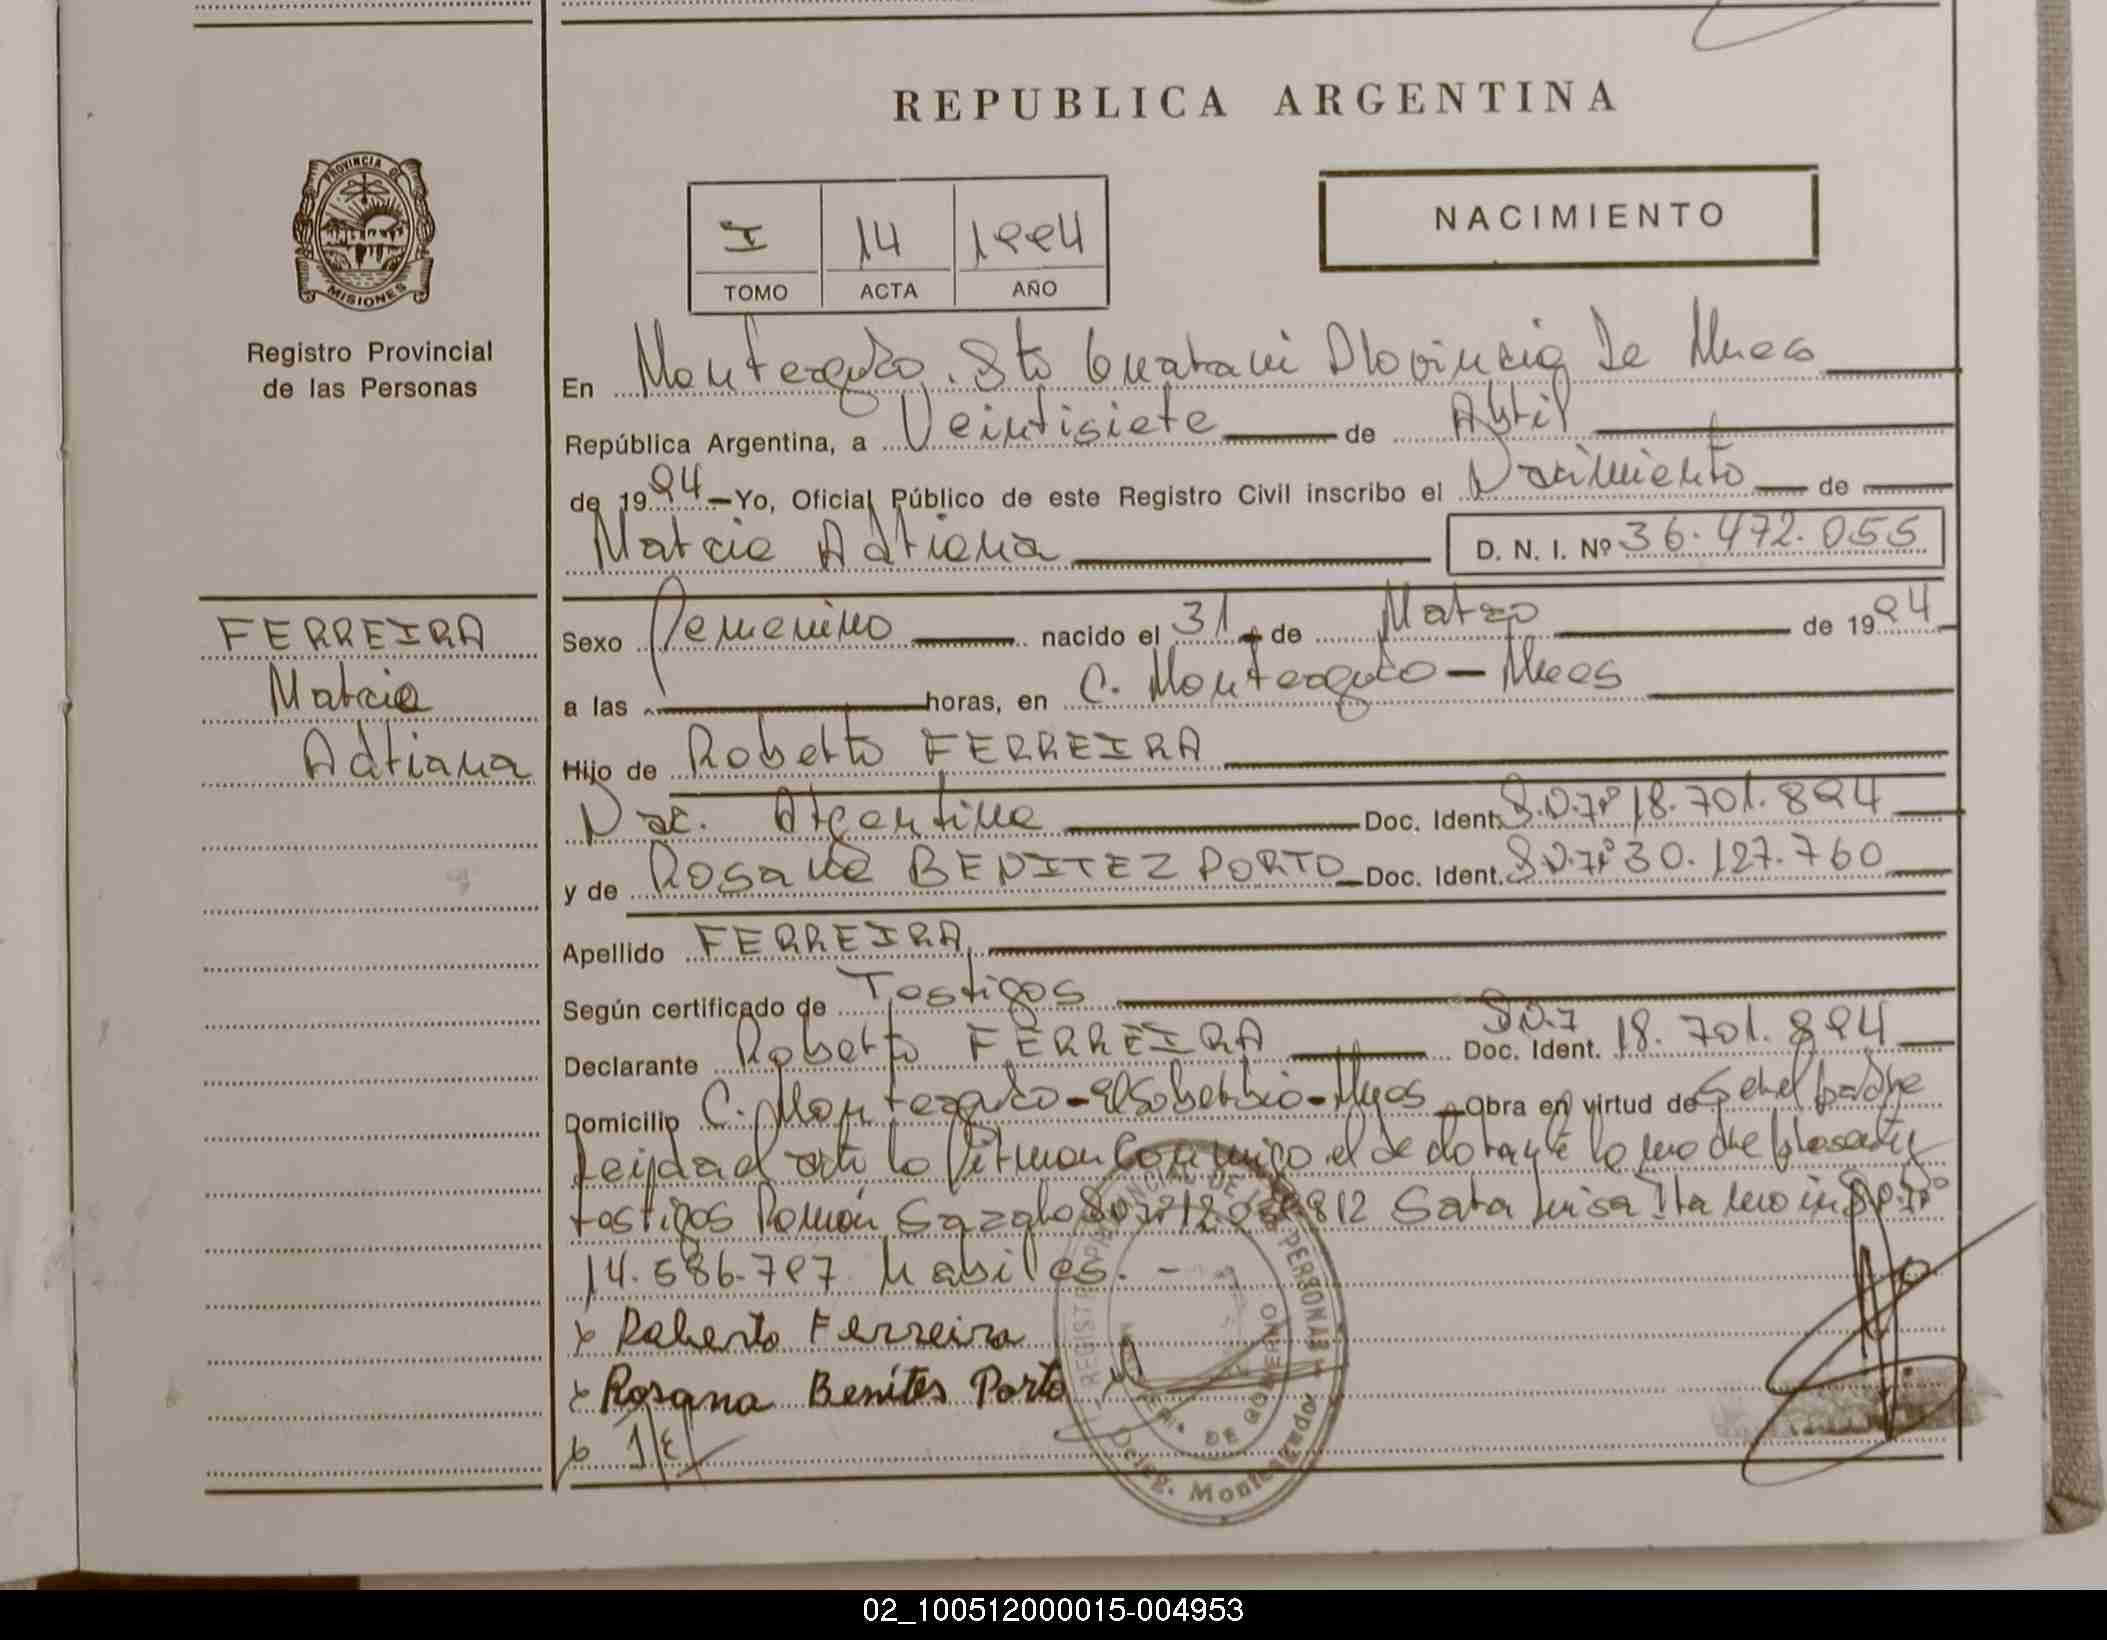 REPUBLICA ARGENTINA
PROVINCIA DE
MISIONES
Registro Provincial
de las Personas
I 14 1994
TOMO ACTA AÑO
NACIMIENTO
En Monteagudo. Dto Guarani Provincia de Mnes
República Argentina, a Veintisiete de Abril
de 1994 — Yo, Oficial Público de este Registro Civil inscribo el Nacimiento — de
Marcia Adriana D. N. I. Nº 36.472.055
FERREIRA
Marcia
Adriana
Sexo Femenino nacido el 31 de Marzo de 1994
a las horas, en C. Monteagudo — Mnes
Hijo de Roberto FERREIRA
Nac. Argentina Doc. Ident. D.N.I Nº 18.701.894
y de Rosana BENITEZ PORTO Doc. Ident. D.N.I Nº 30.127.760
Apellido FERREIRA
Según certificado de Testigos
Declarante Roberto FERREIRA Doc. Ident. D.N.I 18.701.894
Domicilio C. Monteagudo - El Soberbio - Mnes Obra en virtud de ser el padre
Leijda el acta lo firman conmigo el declarante la madre presente y
testigos Ramón 812 Sara Luisa D.N.I Nº
14.586.797 habiles. -
x Roberto Ferreira
x Rosana Benítes Porto x
x
REGISTRO PROVINCIAL DE LAS PERSONAS
M. DE GOBIERNO
Deleg. Monteagudo
02_100512000015-004953